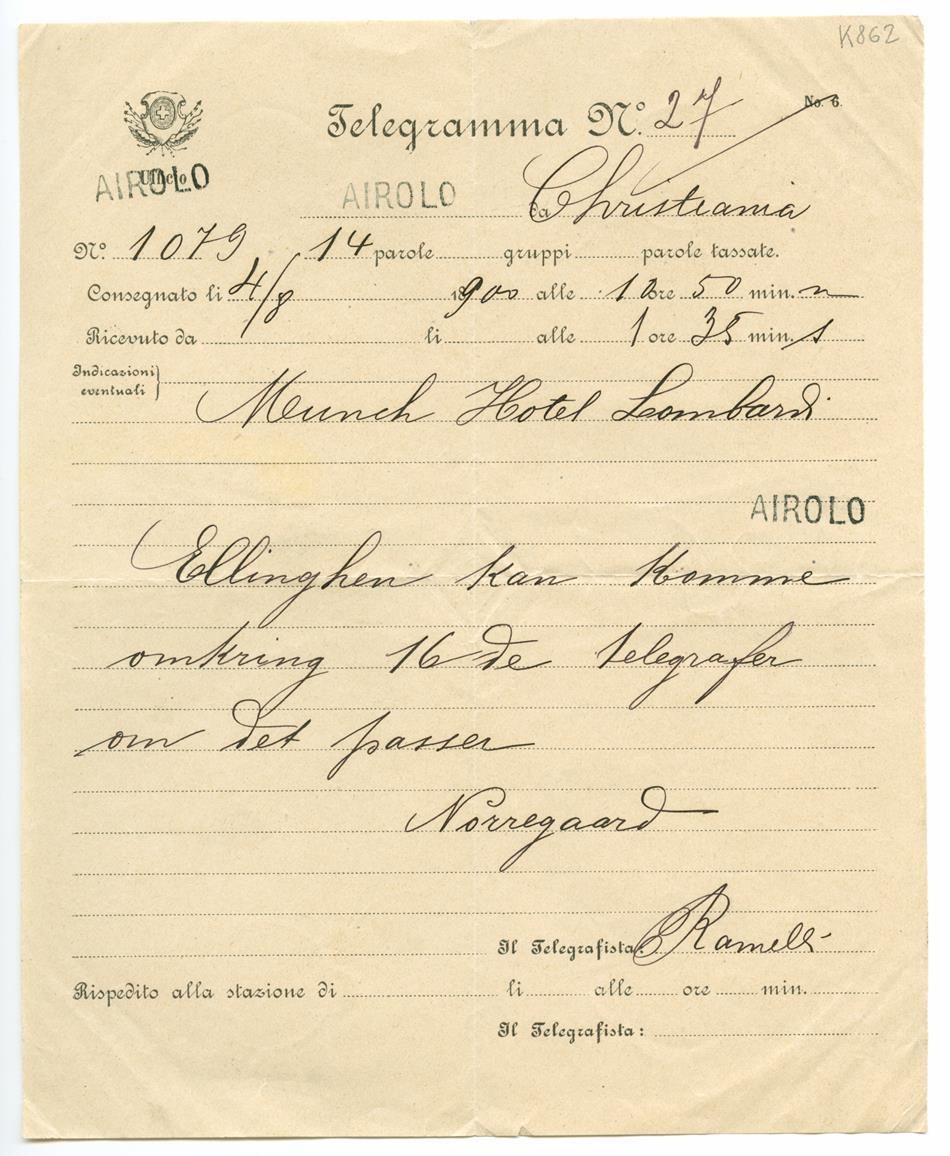 K862
No. 6.
Telegramma N.º 27
Ufficio
AIROLO
AIROLO da Christiania
N.º 1079 14 parole gruppi parole tassate.
Consegnato li 4/8 1900 alle 12 ore 50 min. n
Ricevuto da li alle 1 ore 35 min. s
Indicazioni
eventuali
Munch Hotel Lombardi
AIROLO
Ellinghen kan komme
omkring 16 de telegrafer
om det passer
Norregaard
Il Telegrafista: Ramelli
Rispedito alla stazione di li alle ore min.
Il Telegrafista: